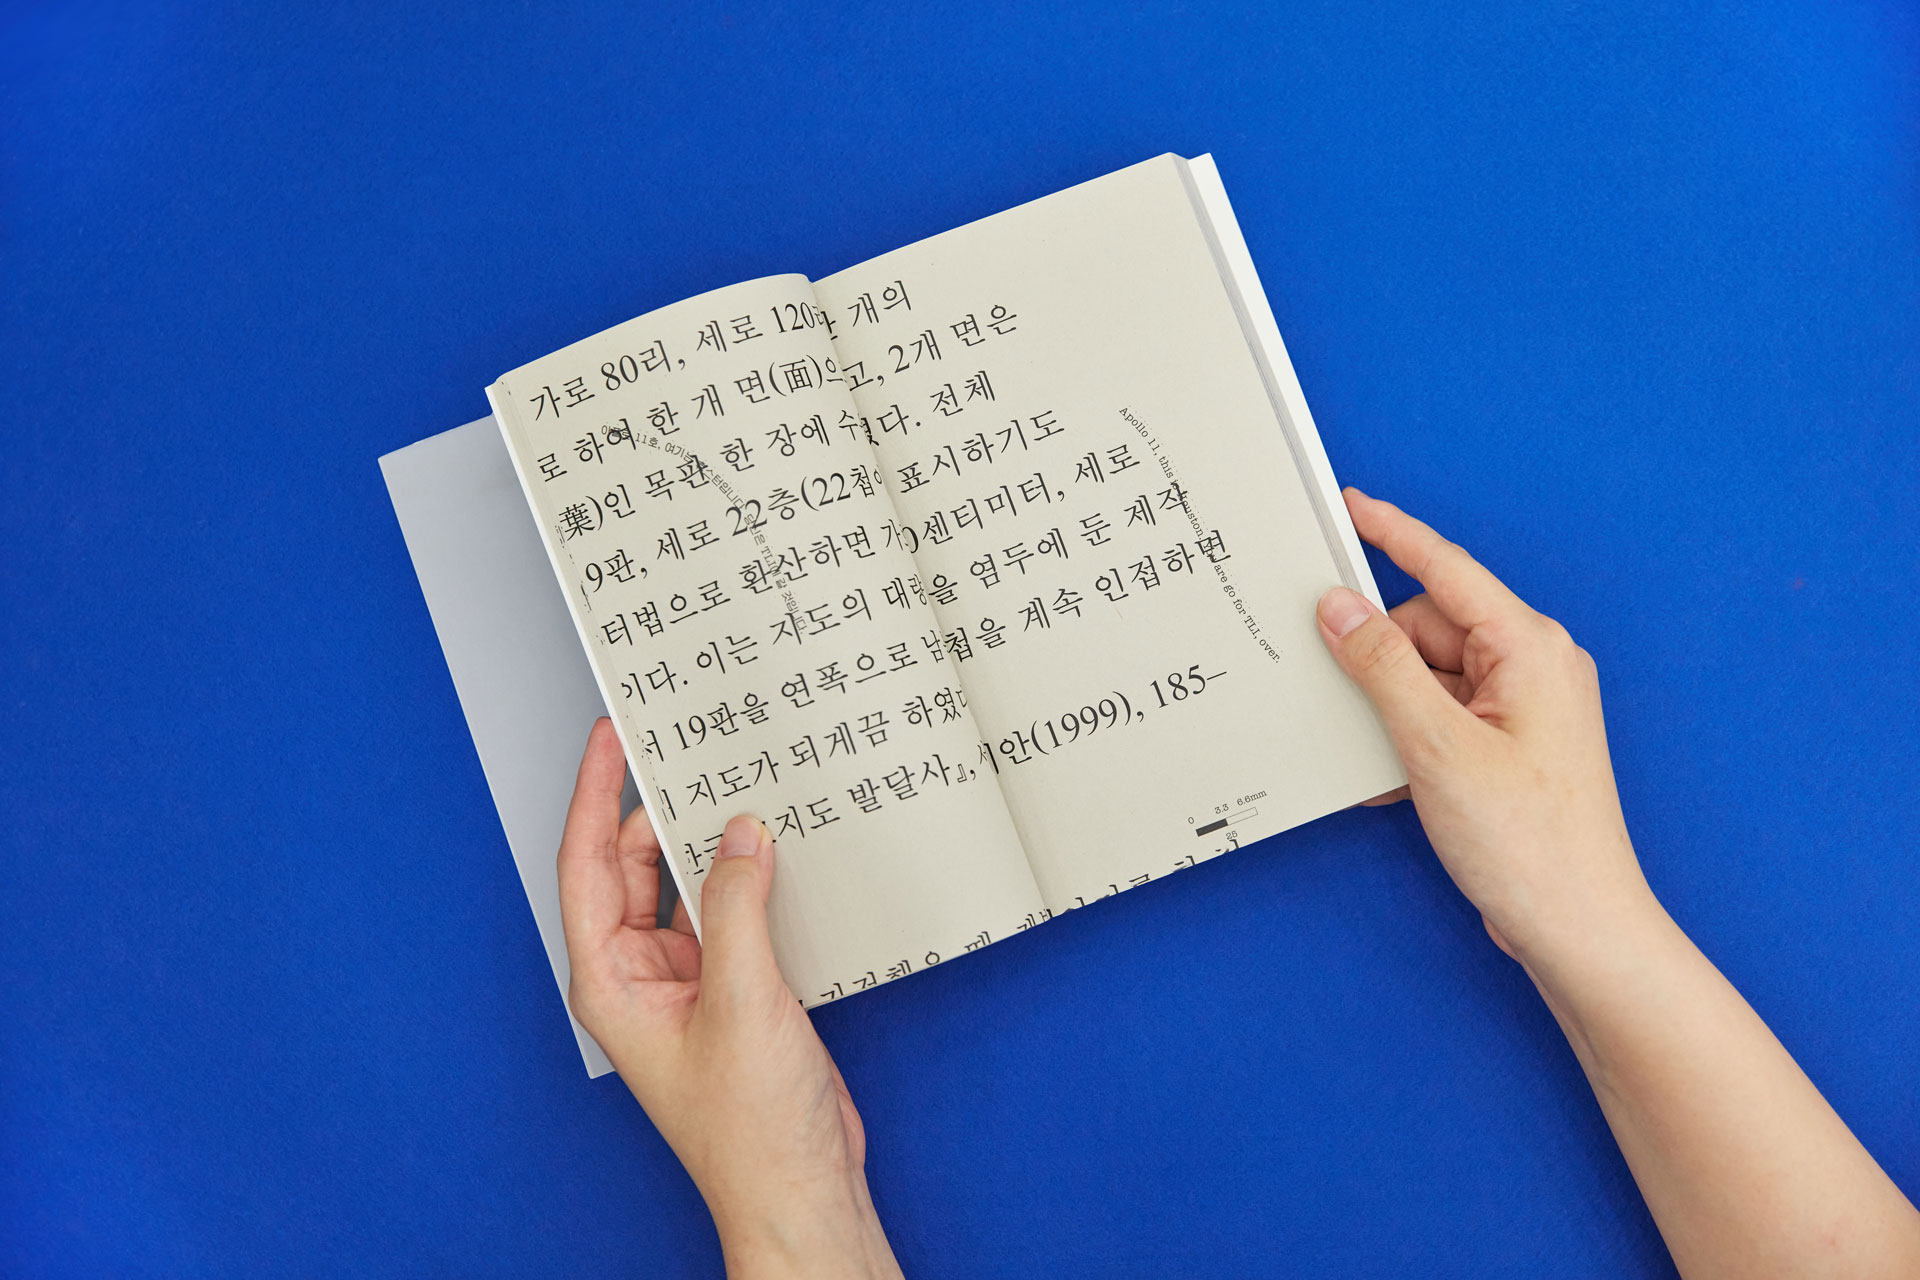 가로 80리, 세로 120 개의
로 하여 한 개 면(面)으 고, 2개 면은
葉)인 목판 한 장에 수 다. 전체
9판, 세로 22층(22첩 표시하기도
터법으로 환산하면 가 0센티미터, 세로
이다. 이는 지도의 대량을 염두에 둔 제작
서 19판을 연폭으로 남 첩을 계속 인접하면
지도가 되게끔 하였다
고지도 발달사』, 서안(1999), 185–
아폴로 11호, 여기는 휴스턴입니다.
Apollo 11, this is Houston. You are go for TLI, over.
0 3.3 6.6mm
25